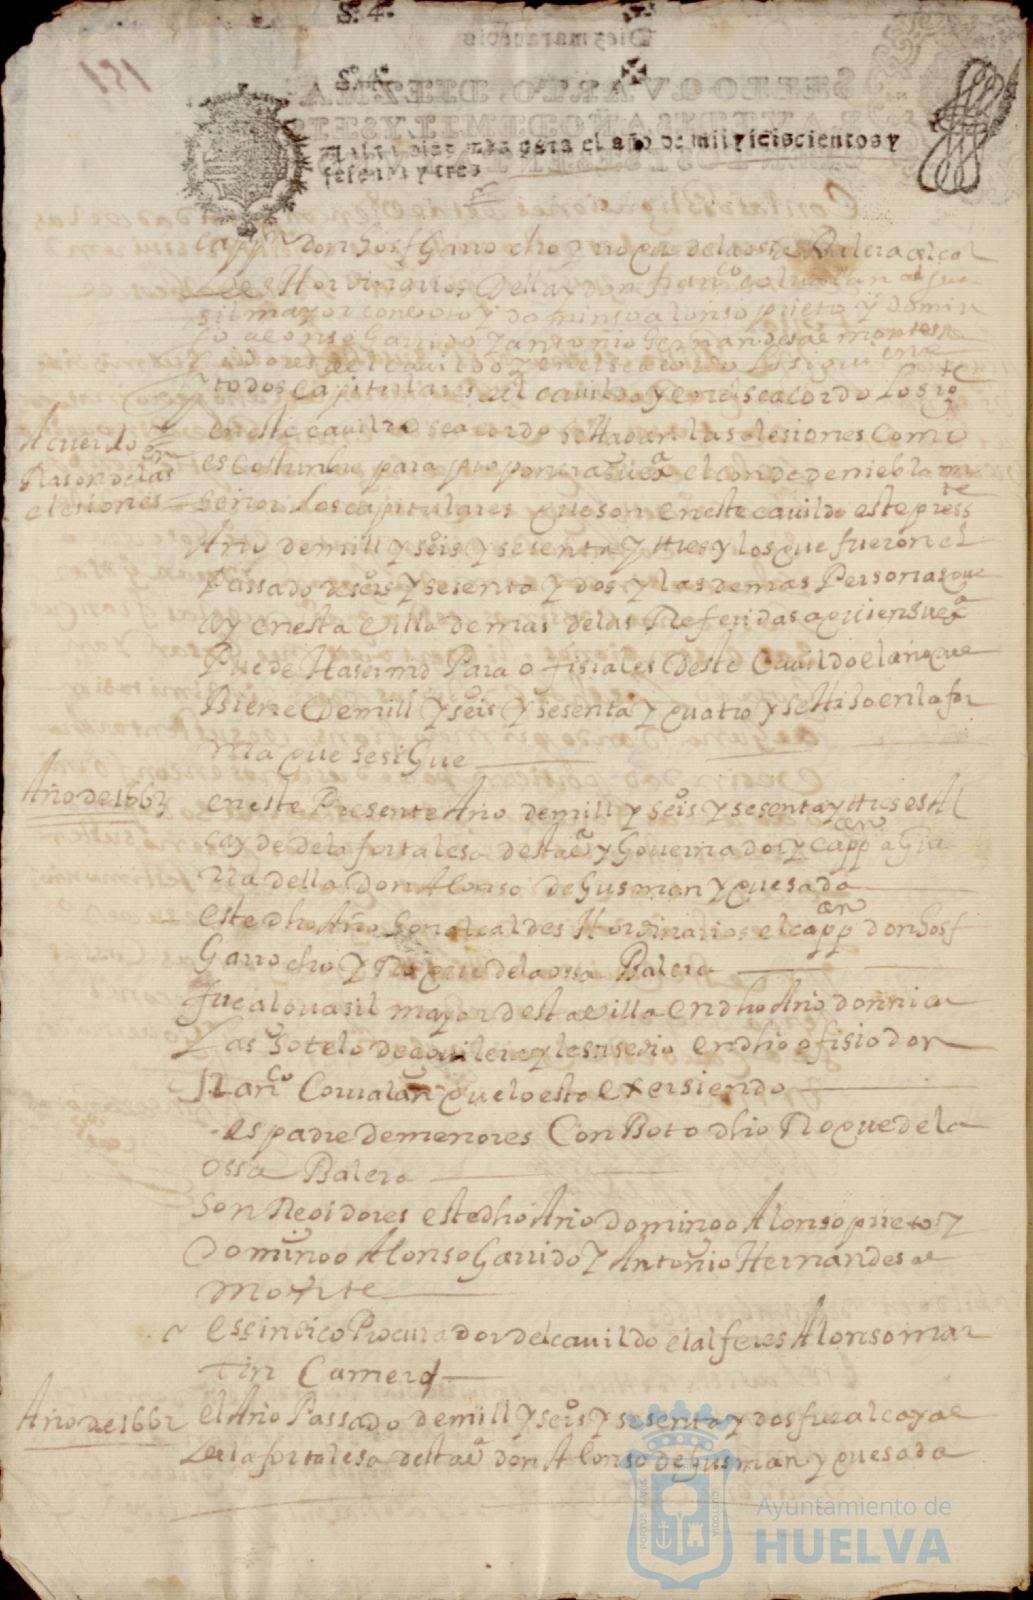 S. 4.
151
para el año de mil y seiscientos y
sesenta y tres
capp.an don Josf Garrocho y roque de la ossa Balera alcal
des Hordinarios della y don fran.co corualan algua
sil mayor con boto y domingo alonso prieto y domin
go alonso Garrido y antonio hernandes de monte Re
gidores del cauildo y en el se acordo lo siguiente
todos capitulares del cauildo y en el se acordo lo sig.te
Acuerdo en
Rason de las
elesiones
en este cauildo se acordo se Hagan las elesiones Como
es costumbre para proponer a su ex.a el conde de niebla mi
señor Los capitulares que son en este cauildo este press.te
Año de mill y seis.os y sesenta y tres y los que fueron el
Passado de seis.os y sesenta y dos y las demas Personas que
ay en esta villa demas de las Referidas a quien su ex.a
Puede Haser md Para ofisiales deste Cauildo el año que
Biene de mill y seis.os y sesenta y quatro y se Hiso en la for
ma que se sigue
Año de 1663
en este Presente Año de mill y seis.os y sesenta y tres es Al
cayde de la fortalesa desta v.a y Gouernador y capp.an a Gue
rra della don Alonso de Gusman y quesada
este dho Año son alcaldes Hordinarios el capp.an don Josf
Garrocho y Roque de la ossa Balera
fue alguasil mayor desta villa en dho Año don nico
las sotelo de aguilera y le susedio en dho ofisio don
fran.co Corualan que lo esta exersiendo
es padre de menores Con Boto dho Roque de la
ossa Balera
Son Regidores este dho Año domingo Alonso prieto y
Domingo Alonso Garrido y Antonio Hernandes de
Monte
es sindico Procurador del cauildo el alferes Alonso mar
tin Camero
Año de 1662
el Año Passado de mill y seis.os y sesenta y dos fue alcayde
de la fortalesa desta v.a don Alonso de Gusman y quesada
PORTUS MARIS
ET TERRAE CUSTODIA
Ayuntamiento de
HUELVA